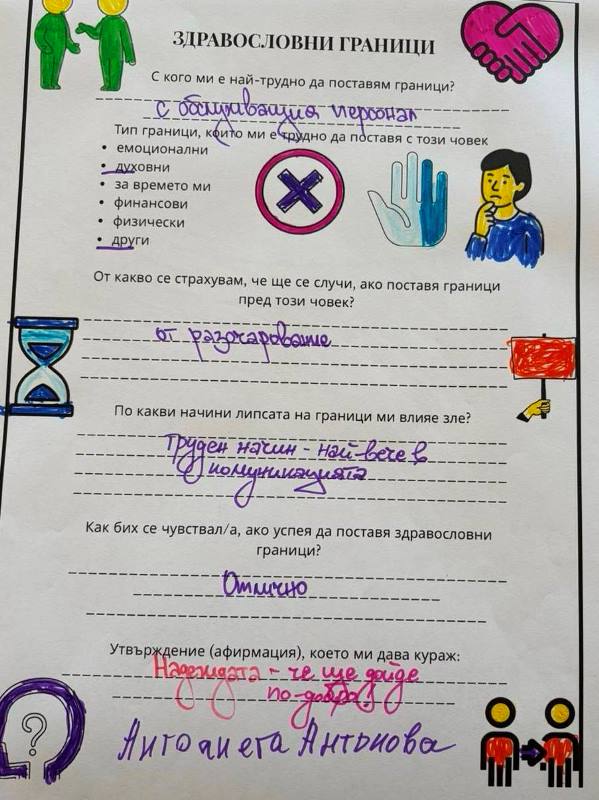 ЗДРАВОСЛОВНИ ГРАНИЦИ
С кого ми е най-трудно да поставям граници?
с обслужващия персонал
Тип граници, които ми е трудно да поставя с този човек
• емоционални
• духовни
• за времето ми
• финансови
• физически
• други
От какво се страхувам, че ще се случи, ако поставя граници
пред този човек?
от разочарование
По какви начини липсата на граници ми влияе зле?
труден начин - най-вече в
комуникацията
Как бих се чувствал/а, ако успея да поставя здравословни
граници?
Отлично
Утвърждение (афирмация), което ми дава кураж:
Надеждата - че ще дойде
по-добро!
?
Антоанета Антонова